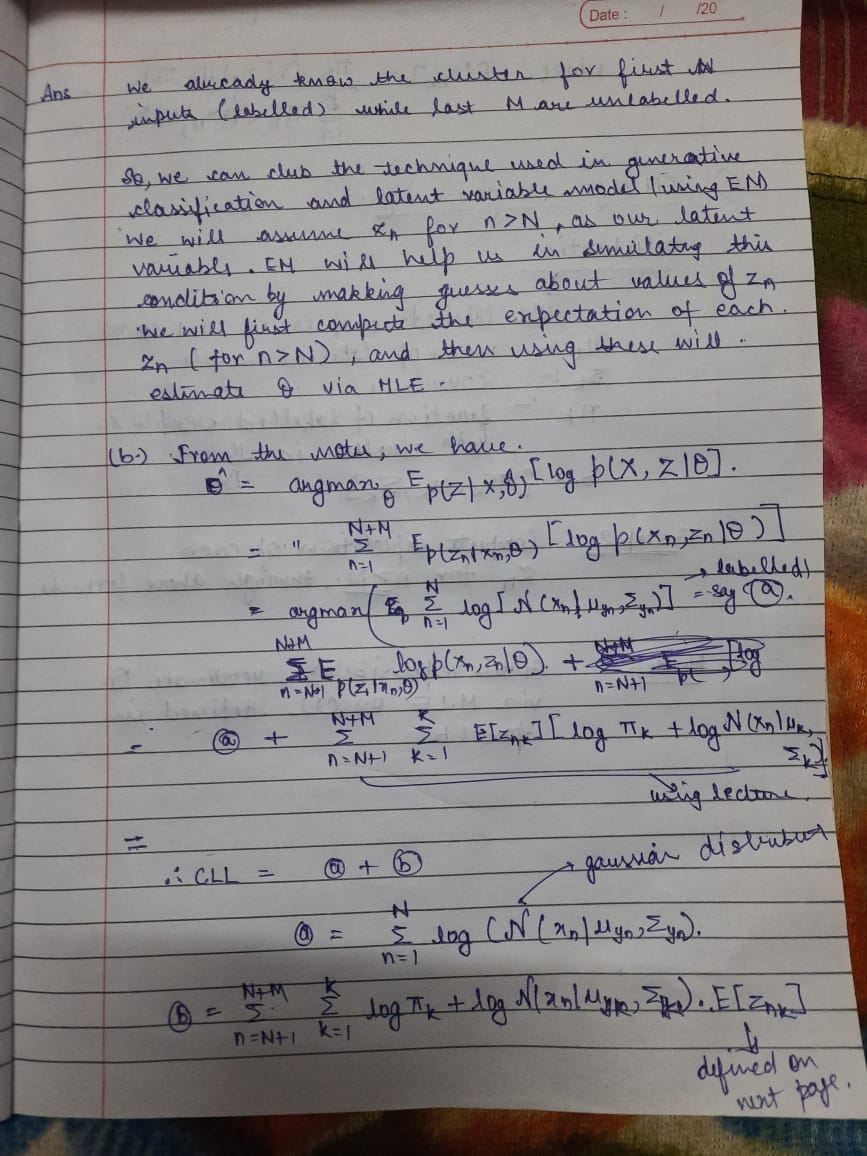 Date : / /20
Ans We already know the cluster for first N
inputs (labelled) while last M are unlabelled.
So, we can club the technique used in generative
classification and latent variable model (using EM)
We will assume zn for n>N, as our latent
variables. EM will help us in simulating this
condition by makking guesses about values of zn
We will first compute the expectation of each
zn (for n>N), and then using these will
estimate θ via MLE.
(b.) From the notes, we have.
θ̂ = argmax_θ E_{p(Z|X,θ̂)} [log p(X, Z|θ)].
= " Σ_{n=1}^{N+M} E_{p(zn|xn,θ)} [log p(xn, zn|θ)]
→ labelled)
= argmax ( Σ_{n=1}^{N} log [N(xn|μyn, Σyn)] = say ⓐ.
Σ_{n=N+1}^{N+M} E_{p(zn|xn,θ)} log p(xn, zn|θ). +
= ⓐ + Σ_{n=N+1}^{N+M} Σ_{k=1}^{K} E[znk] [log πk + log N(xn|μk, Σk)]
using lecture
=
∴ CLL = ⓐ + ⓑ → gaussian distribut
ⓐ = Σ_{n=1}^{N} log (N(xn|μyn, Σyn).
ⓑ = Σ_{n=N+1}^{N+M} Σ_{k=1}^{K} log πk + log N(xn|μk, Σk). E[znk]
defined on
next page.